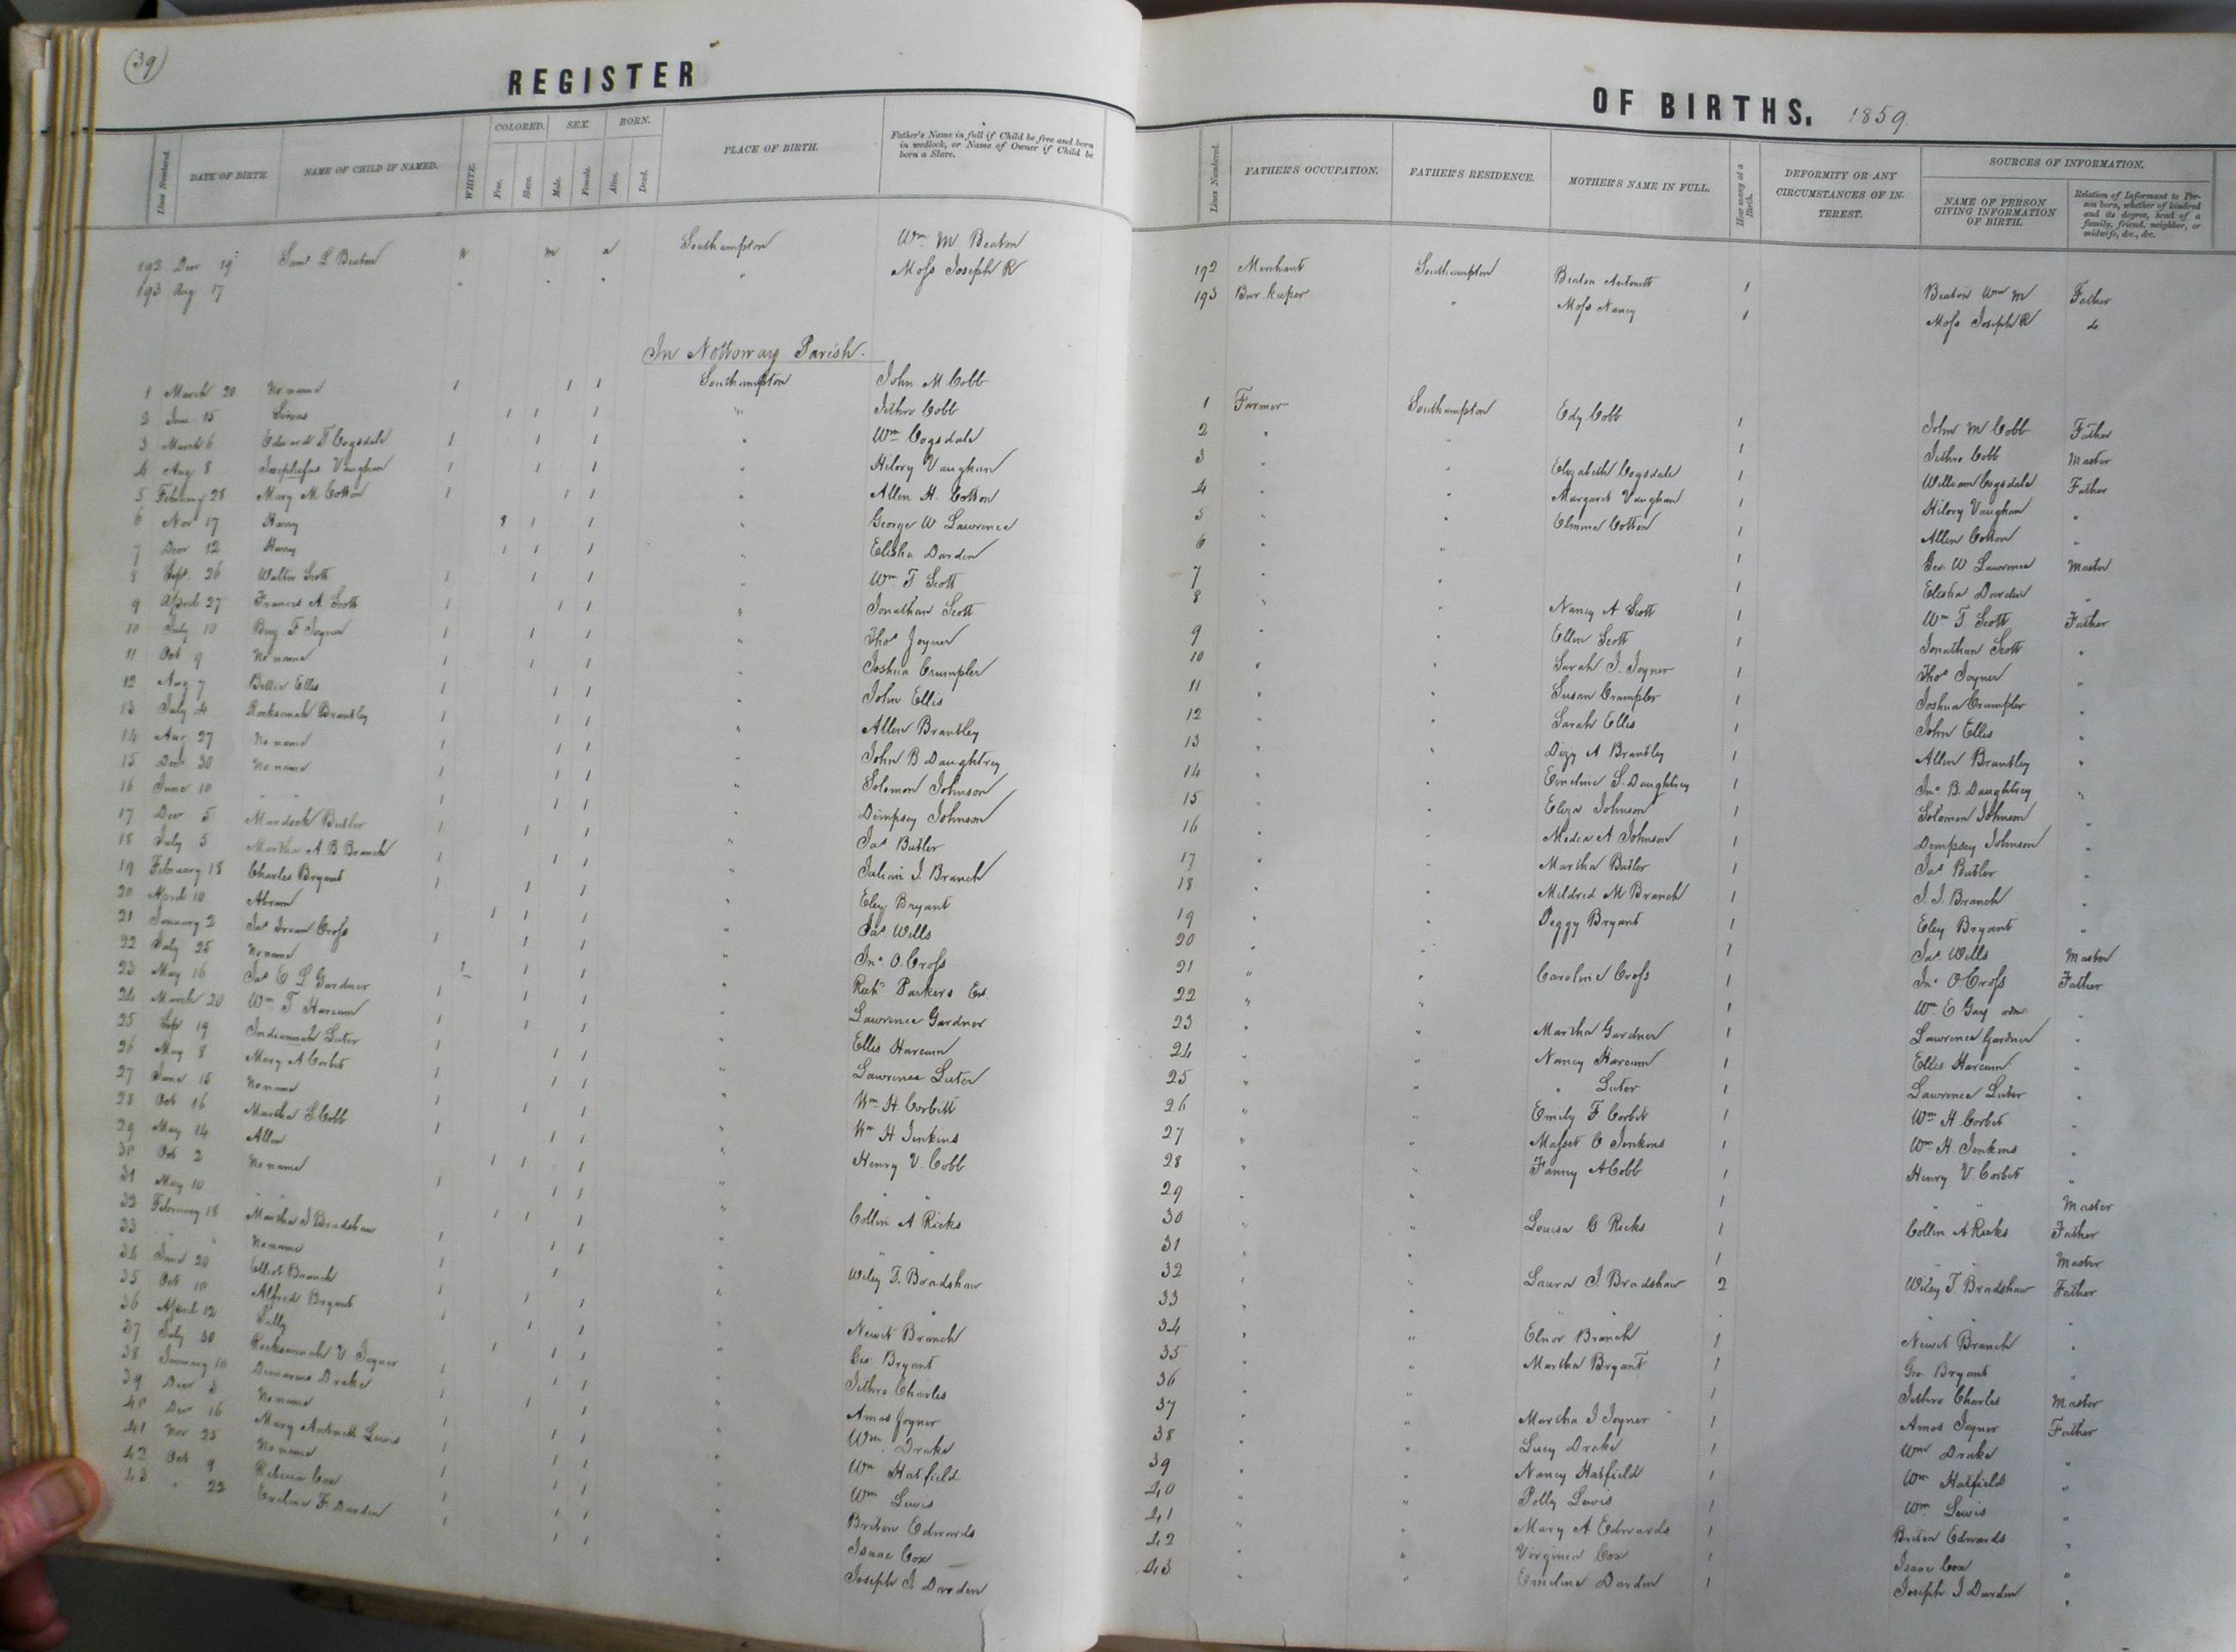 (39)
REGISTER
Lines Numbered. DATE OF BIRTH. NAME OF CHILD IF NAMED. WHITE. COLORED. Free. Slave. SEX. Male. Female. BORN. Alive. Dead. PLACE OF BIRTH. Father's Name in full if Child be free and born in wedlock, or Name of Owner if Child be born a Slave.
192 Decr 19 Saml L Beaton w m a Southampton Wm M Beaton
193 Aug 17 " " " " Moss Joseph R
In Nottoway Parish.
1 March 20 No name 1 1 1 Southampton John M Cobb
2 Jan 15 1 1 1 " Jethro Cobb
3 March 6 Edward T Cogsdale 1 1 1 " Wm Cogsdale
4 Aug 8 Josephus Vaughan 1 1 1 " Hilory Vaughan
5 February 28 Mary M Cotton 1 1 1 " Allen H. Cotton
6 Nov 17 Harry 1 1 1 " George W Lawrence
7 Decr 12 Harry 1 1 1 " Elisha Darden
8 Sept. 26 Walter Scott 1 1 1 " Wm T Scott
9 April 27 Frances A. Scott 1 1 1 " Jonathan Scott
10 July 10 Benj F Joyner 1 1 1 " Thos Joyner
11 Oct 9 No name 1 1 1 " Joshua Crumpler
12 Aug 7 Bettie Ellis 1 1 1 " John Ellis
13 July 4 Rocksanah Brantley 1 1 1 " Allen Brantley
14 Aug 27 No name 1 1 1 " John B Daughtrey
15 Decr 30 No name 1 1 1 " Solomon Johnson
16 June 10 " " 1 1 1 " Dempsey Johnson
17 Decr 5 Murdock Butler 1 1 1 " Jas Butler
18 July 5 Martha A B Branch 1 1 1 " Julian J. Branch
19 February 18 Charles Bryant 1 1 1 " Eley Bryant
20 April 10 Abram 1 1 1 " Jas. Wells
21 January 2 Jas Cross 1 1 1 " Jno O. Cross
22 July 25 No name 1 1 1 " Parkers Est
23 May 16 Jas E L Gardner 1 1 1 " Lawrence Gardner
24 March 20 Wm T Harcum 1 1 1 " Ellis Harcum
25 Sep 19 Indiannah Luter 1 1 1 " Lawrence Luter
26 May 8 Mary A Corbit 1 1 1 " Wm H. Corbitt
27 June 15 No name 1 1 1 " Wm H Jenkins
28 Oct 16 Martha S. Cobb 1 1 1 " Henry V. Cobb
29 May 14 Allen 1 1 1 " " "
30 Oct 2 No name 1 1 1 " Collin A Ricks
31 May 10 " " 1 1 1 " " "
32 February 18 Martha J Bradshaw 1 1 1 " Wiley T. Bradshaw
33 " " No name 1 1 " " "
34 June 20 Elliot Branch 1 1 1 " Newit Branch
35 Oct 10 Alfred Bryant 1 1 1 " Geo. Bryant
36 April 12 Sally 1 1 1 " Jethro Charles
37 July 30 Rocksannah V Joyner 1 1 1 " Amos Joyner
38 January 10 Drake 1 1 1 " Wm. Drake
39 Decr 3 No name 1 1 1 " Wm Hatfield
40 Decr 16 Mary Antinett Lewis 1 1 1 " Wm Lewis
41 Nov 25 No name 1 1 1 " Briton Edwards
42 Oct 9 Rebecca Cox 1 1 1 " Isaac Cox
43 " 22 Emeline F. Darden 1 1 1 " Joseph J. Darden
OF BIRTHS. 1859.
Lines Numbered. FATHER'S OCCUPATION. FATHER'S RESIDENCE. MOTHER'S NAME IN FULL. How many at a Birth. DEFORMITY OR ANY CIRCUMSTANCES OF INTEREST. SOURCES OF INFORMATION. NAME OF PERSON GIVING INFORMATION OF BIRTH. Relation of Informant to Person born, whether of kindred and its degree, head of a family, friend, neighbor, or midwife, &c., &c.
192 Merchant Southampton Beaton Antonett 1 Beaton Wm M Father
193 Bar. keeper " Moss Nancy 1 Moss Joseph R do
1 Farmer Southampton Edy Cobb 1 John M Cobb Father
2 " " 1 Jethro Cobb Master
3 " " Elizabeth Cogsdale 1 William Cogsdale Father
4 " " Margaret Vaughan 1 Hilory Vaughan "
5 " " Cotton 1 Allen Cotton "
6 " " 1 Geo. W Lawrence Master
7 " " 1 Elisha Darden "
8 " " Nancy A Scott 1 Wm T Scott Father
9 " " Ellen Scott 1 Jonathan Scott "
10 " " Sarah J. Joyner 1 Thos Joyner "
11 " " Susan Crumpler 1 Joshua Crumpler "
12 " " Sarah Ellis 1 John Ellis "
13 " " Dizy A Brantley 1 Allen Brantley "
14 " " Emeline S. Daughtrey 1 Jno. B. Daughtrey "
15 " " Eliza Johnson 1 Solomon Johnson "
16 " " Media A Johnson 1 Dempsey Johnson "
17 " " Martha Butler 1 Jas Butler "
18 " " Mildred M Branch 1 J. J. Branch "
19 " " Peggy Bryant 1 Eley Bryant "
20 " " 1 Jas. Wells Master
21 " " Caroline Cross 1 Jno O. Cross Father
22 " " 1 Wm. E Gay adm. "
23 " " Martha Gardner 1 Lawrence Gardner "
24 " " Nancy Harcum 1 Ellis Harcum "
25 " " " Luter 1 Lawrence Luter "
26 " " Emily F Corbit 1 Wm H Corbit "
27 " " C Jenkins 1 Wm H. Jenkins "
28 " " Fanny A Cobb 1 Henry V. Corbit "
29 " " 1 " " Master
30 " " Louisa G Ricks 1 Collin A Ricks Father
31 " " 1 " " Master
32 " " Laura J Bradshaw 2 Wiley T. Bradshaw Father
33 " " " " " "
34 " " Elnor Branch 1 Newit Branch "
35 " " Martha Bryant 1 Geo. Bryant "
36 " " 1 Jethro Charles Master
37 " " Martha J Joyner 1 Amos Joyner Father
38 " " Lucy Drake 1 Wm Drake "
39 " " Nancy Hatfield 1 Wm Hatfield "
40 " " Polly Lewis 1 Wm Lewis "
41 " " Mary A Edwards 1 Briton Edwards "
42 " " Virginia Cox 1 Isaac Cox "
43 " " Emeline Darden 1 Joseph J Darden "